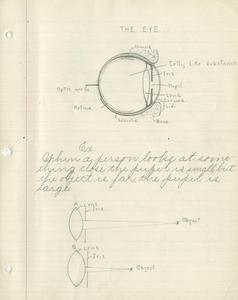 THE EYE.
Choroid
Jelly Like Substance
Iris
Optic nerve
Pupil
Lens
Retina
Lid.
Sclerotic
Bone
Ex.
When a person looks at some-
thing close the pupil is small, but
the object is far the pupil is
large.
A Lens
Iris
Object
B Lens
Iris
Object